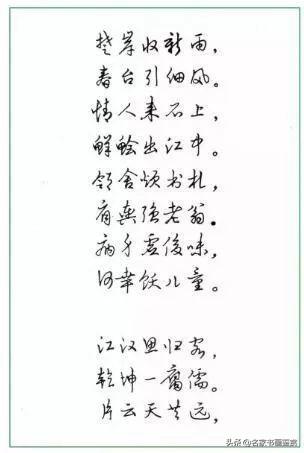 楚岸收新雨，
春台引细风。
情人来石上，
鲜鲙出江中。
邻舍烦书札，
肩舆强老翁。
病身虚俊味，
何幸饫儿童。
江汉思归客，
乾坤一腐儒。
片云天共远，
头条 @名家书画